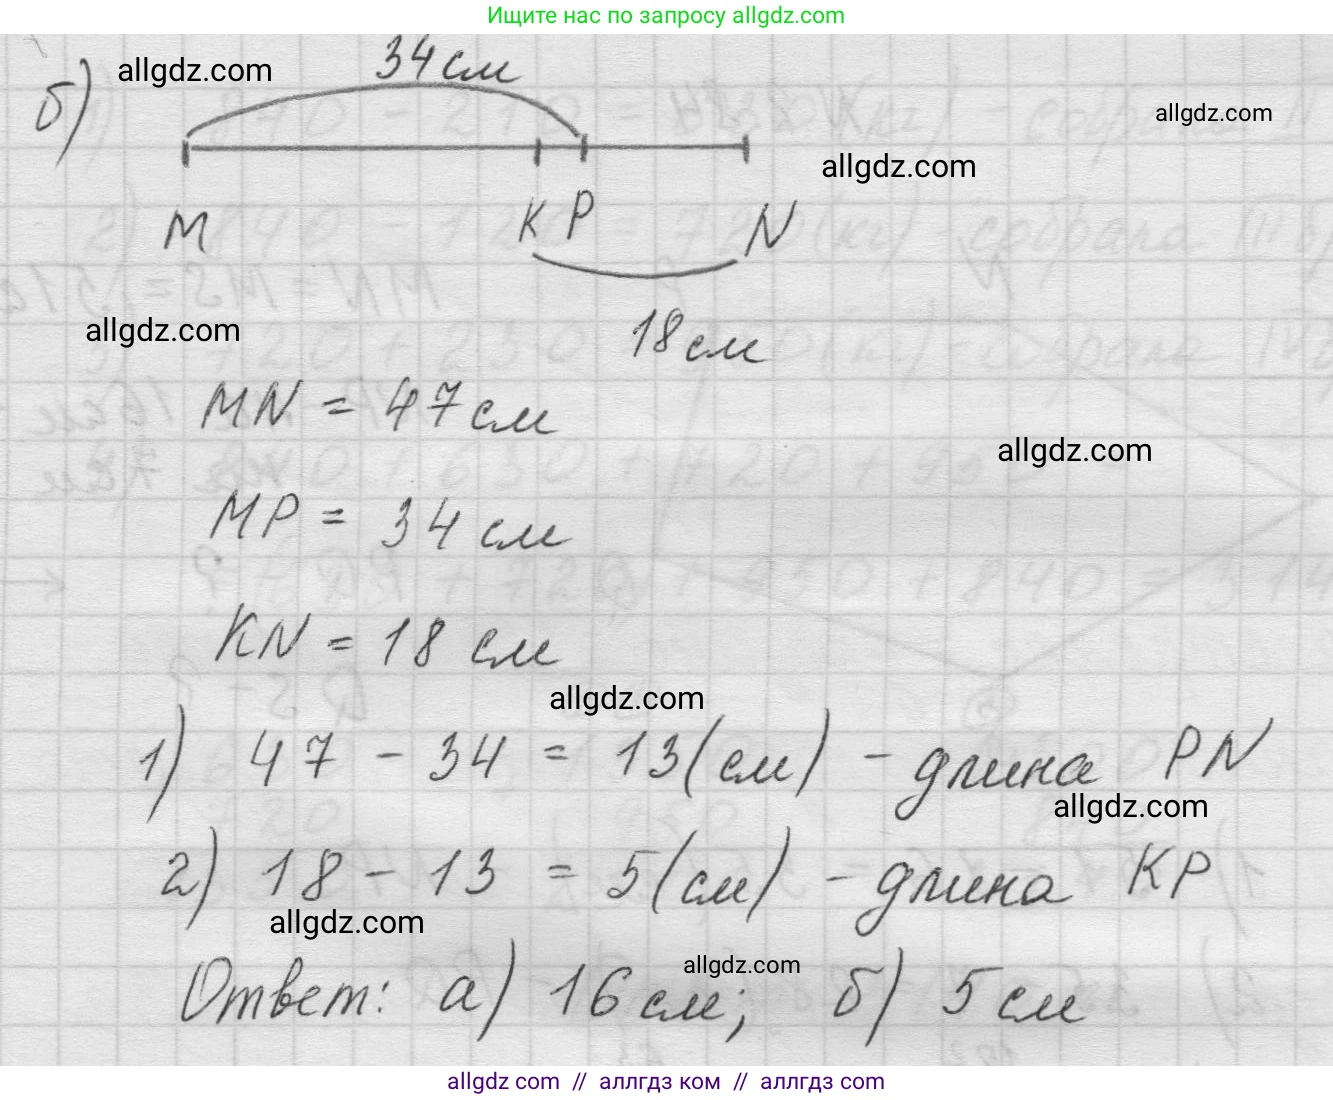 Ищите нас по запросу allgdz.com
34 см
allgdz.com
б)
allgdz.com
allgdz.com
M K P N
allgdz.com
18 см
MN = 47 см
allgdz.com
MP = 34 см
KN = 18 см
allgdz.com
1) 47 - 34 = 13 (см) - длина PN
allgdz.com
2) 18 - 13 = 5 (см) - длина KP
allgdz.com
allgdz.com
Ответ: а) 16 см; б) 5 см
allgdz com // аллгдз ком // аллгдз com